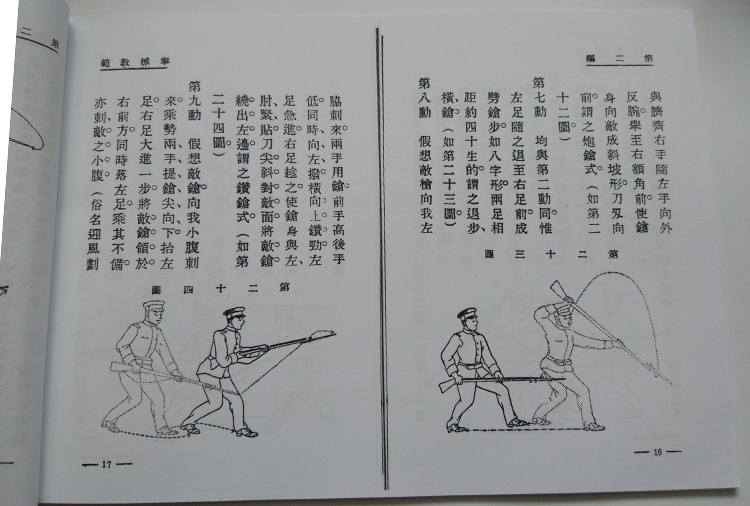 第二編
與臍齊右手隨左手向外
反腕舉至右額角前使鎗
身向敵成斜坡形刀刄向
前謂之炮鎗式（如第二
十二圖）
第七動　均與第二動同惟
左足隨之退至右足前成
劈鎗步如八字形兩足相
距約四十生的謂之退步
橫鎗（如第二十三圖）
第八動　假想敵槍向我左
第二十三圖
— 16 —
拳械教範
脇刺來兩手用鎗前手高後手
低同時向左撥橫向上鑽勁左
足急進右足趁之使鎗身與左
肘緊貼刀尖斜對敵面將敵鎗
繞出左邊謂之鑽鎗式（如第
二十四圖）
第九動　假想敵鎗向我小腹刺
來乘勢兩手提鎗尖向下抬左
足右足大進一步將敵鎗領於
右前方同時落左足乘其不備
亦刺敵之小腹（俗名迎風劃
第二十四圖
— 17 —
第二